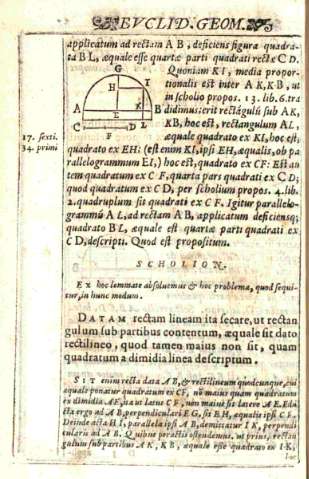 EVCLID. GEOM.
applicatum ad rectam A B, deficiens figura quadra-
ta B L, æquale esse quartæ parti quadrati rectæ C D.
Quoniam K I, media propor-
tionalis est inter A K, K B, ut
in scholio propos. 13. lib. 6. tra
didimus: erit rectãgulũ sub AK,
KB, hoc est, rectangulum AL,
17. sexti.
æquale quadrato ex KI, hoc est,
34. primi
quadrato ex EH: (est enim KI, ipsi EH, æqualis, ob pa
rallelogrammum EI,) hoc est, quadrato ex CF: Est au
tem quadratum ex C F, quarta pars quadrati ex C D;
quod quadratum ex C D, per scholium propos. 4. lib.
2. quadruplum sit quadrati ex C F. Igitur parallelo-
grammũ A L, ad rectam A B, applicatum deficiensq;
quadrato BL, æquale est quartæ parti quadrati ex
C D, descripti. Quod est propositum.
G
H
I
A
E
K
B
C
F
D
L
SCHOLION.
EX hoc lemmate absoluemus & hoc problema, quod sequi-
tur, in hunc modum.
DATAM rectam lineam ita secare, ut rectan
gulum sub partibus contentum, æquale sit dato
rectilineo, quod tamen maius non sit, quam
quadratum a dimidia linea descriptum.
SIT enim recta data A B, & rectilineum quodcunque, cui
æquale ponatur quadratum ex CF, nõ maius quam quadratum
ex dimidia AE, ita ut latus C F, non maius sit latere A E. Edu
cta ergo ad A B, perpendiculari E G, sit E H, æqualis ipsi C F.
Deinde acta H I, parallela ipsi A B, demittatur I K, perpendi
cularis ad A B. Quibus peractis ostendemus, ut prius, rectan
gulum sub partibus A K, K B, æquale esse quadrato ex I K,